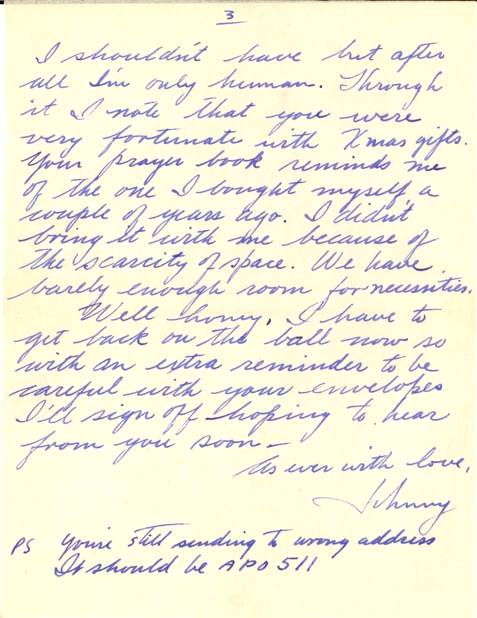 3
I shouldn't have but after
all I'm only human. Through
it I note that you were
very fortunate with Xmas gifts.
Your prayer book reminds me
of the one I bought myself a
couple of years ago. I didn't
bring it with me because of
the scarcity of space. We have
barely enough room for necessities.
Well honey, I have to
get back on the ball now so
with an extra reminder to be
careful with your envelopes
I'll sign off hoping to hear
from you soon -
As ever with love,
Johnny
PS You're still sending to wrong address
It should be APO 511